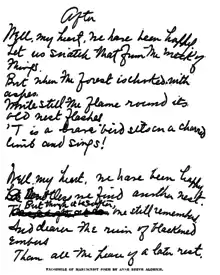 After
Well, my heart, we have been happy
Let us snatch that from the wreck of
things.
But when the forest is choked with
ashes
While still the flame round its
old nest flashes
'T is a brave bird sits on a charred
limb and sings!
Well, my heart, we have been happy
we find another nest
But though we we still remember
And dearer the ruin of blackened
embers
Than all the leaves of a later nest.
FACSIMILE OF MANUSCRIPT POEM BY ANNE REEVE ALDRICH.